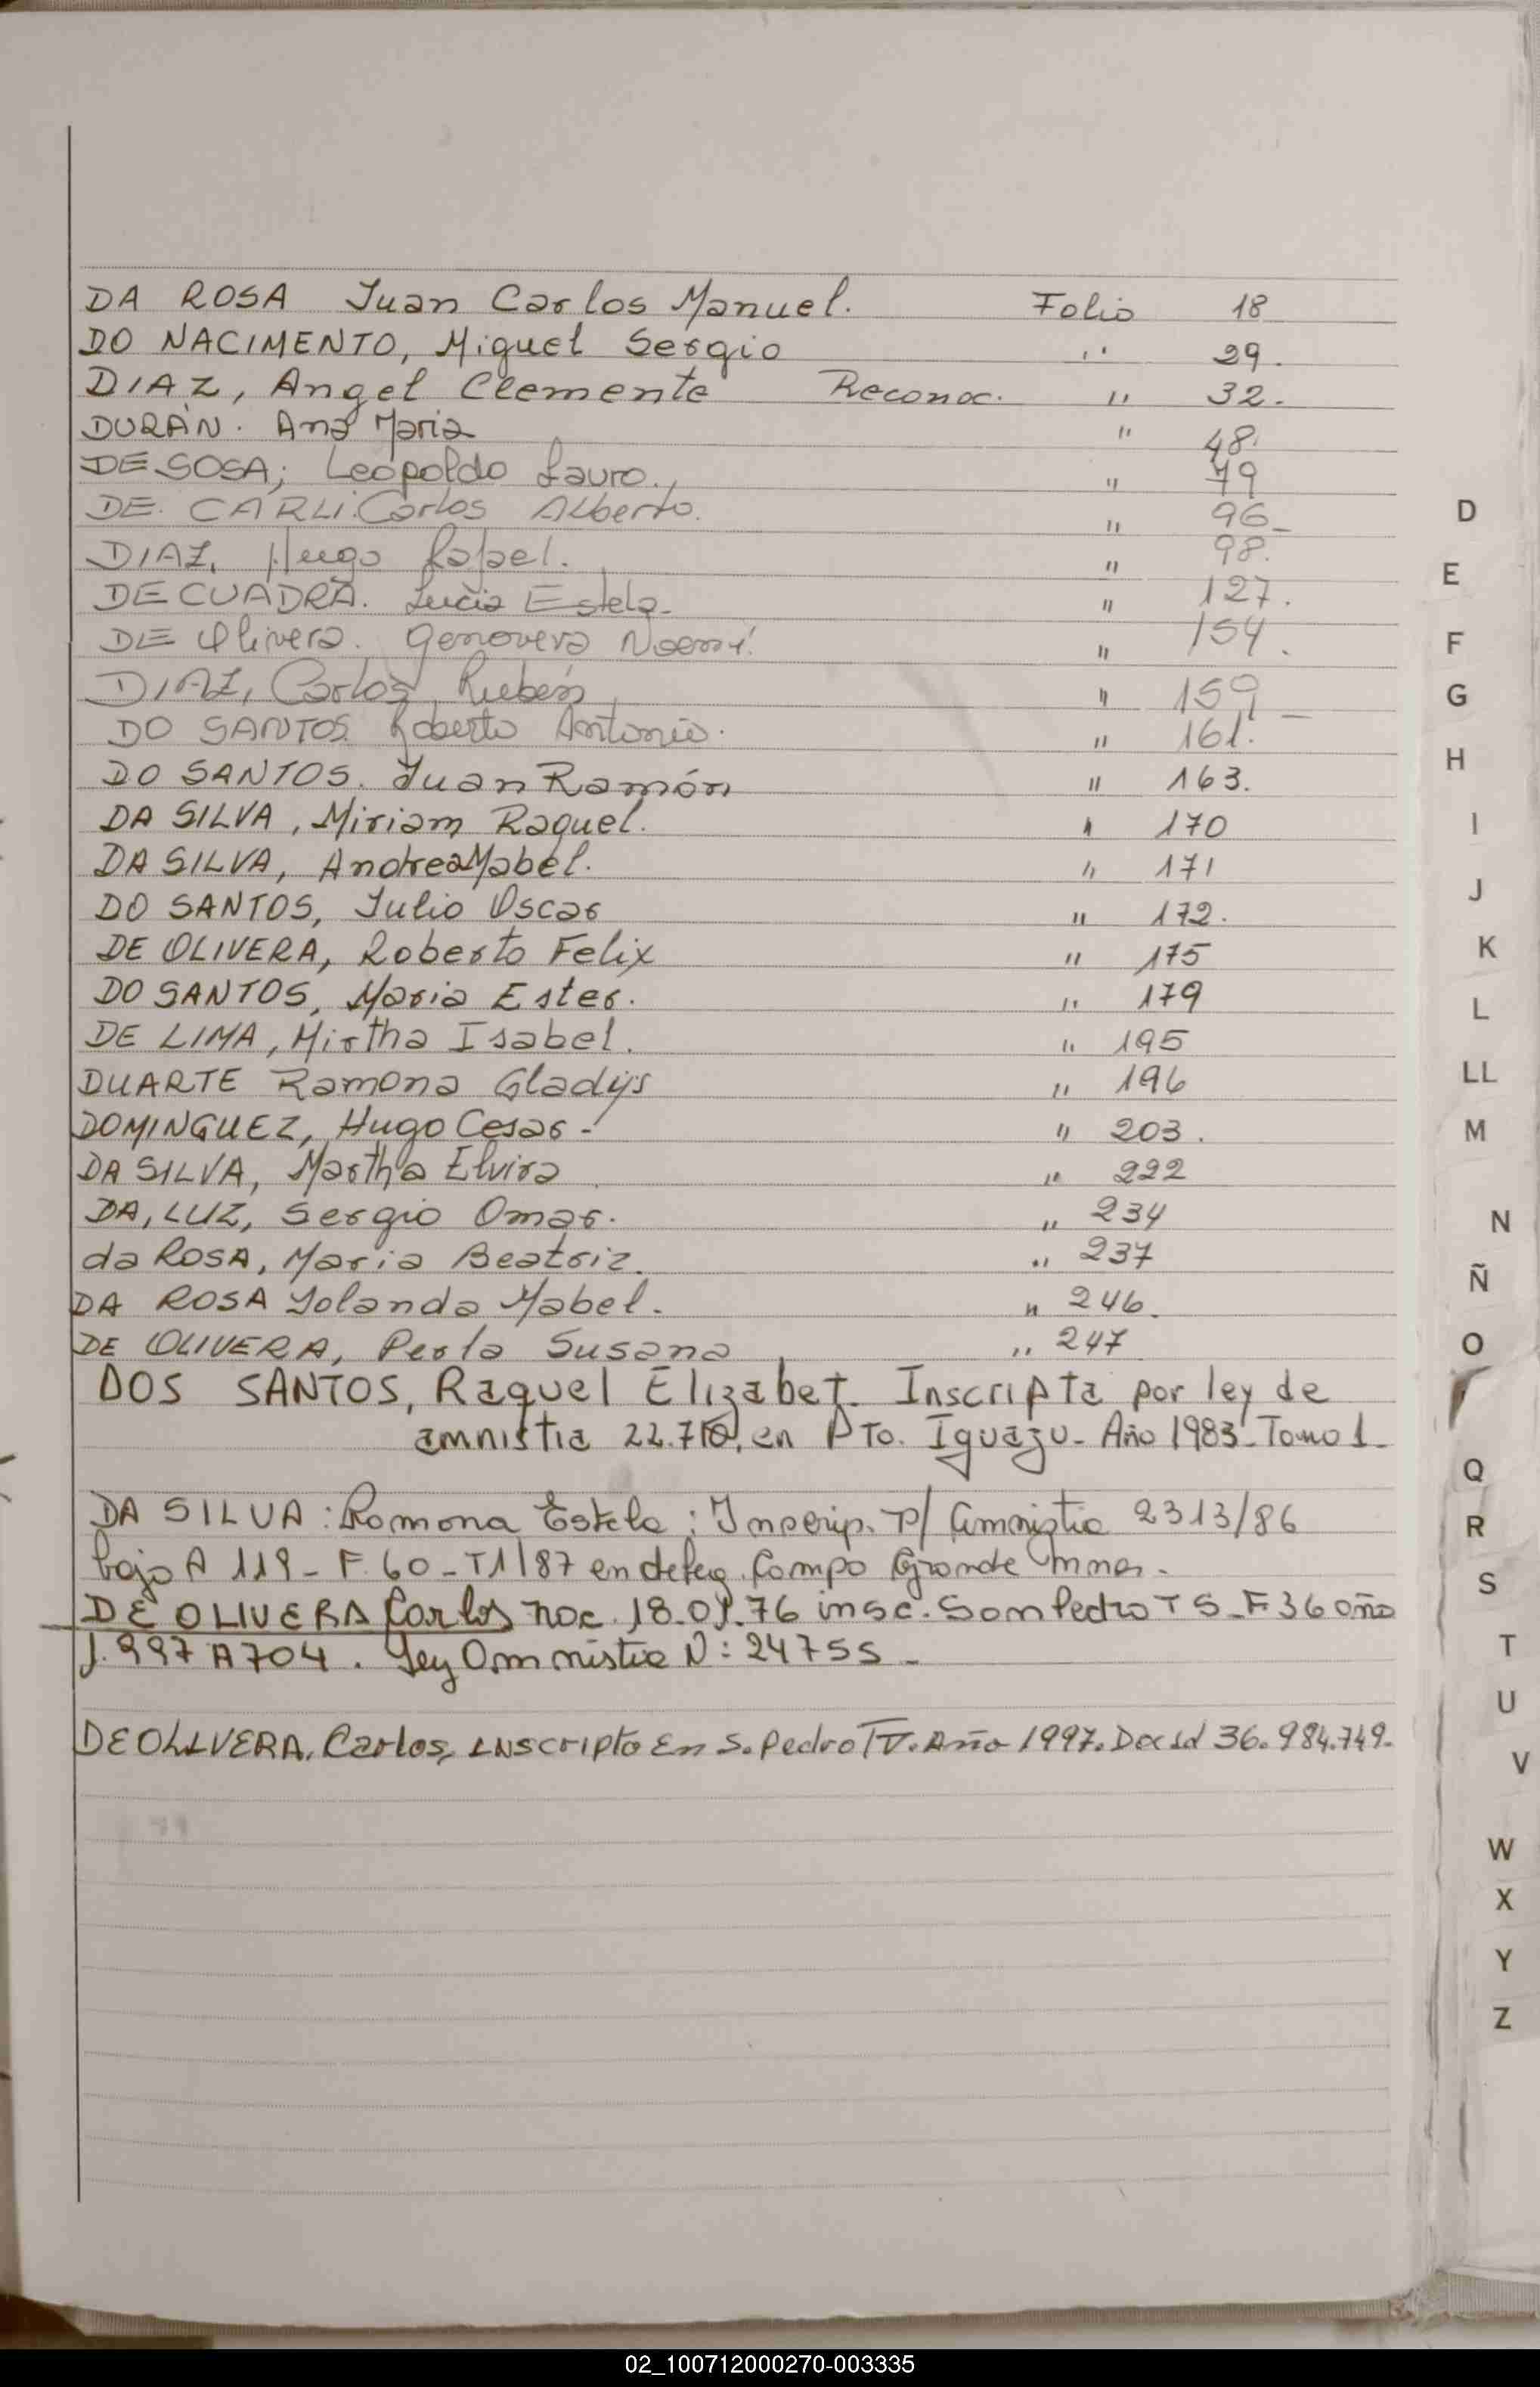 DA ROSA Juan Carlos Manuel. Folio 18
DO NACIMENTO, Miguel Sergio " 29.
DIAZ, Angel Clemente Reconoc. " 32.
DURÁN. Ana Maria " 48.
DE SOSA; Leopoldo Lauro. " 79
DE. CARLI. Carlos Alberto. " 96_
DIAZ, Hugo Rafael. " 98.
DE CUADRA. Lucia Estela. " 127.
DE Olivera. Genoveva Noemí. " 154.
DIAZ, Carlos Rubén " 159_
DO SANTOS Roberto Antonio. " 161.
DO SANTOS. Juan Ramón " 163.
DA SILVA, Miriam Raquel. " 170
DA SILVA, Andrea Mabel. " 171
DO SANTOS, Julio Oscar " 172.
DE OLIVERA, Roberto Felix " 175
DO SANTOS, Maria Ester. " 179
DE LIMA, Mirtha Isabel. " 195
DUARTE Ramona Gladys " 196
DOMINGUEZ, Hugo Cesar - " 203.
DA SILVA, Martha Elvira " 222
DA, LUZ, Sergio Omar. " 234
da ROSA, Maria Beatriz. " 237
DA ROSA Yolanda Mabel. " 246.
DE OLIVERA, Perla Susana " 247
DOS SANTOS, Raquel Elizabet. Inscripta por ley de
amnistia en Pto. Iguazu - Año 1983 - Tomo 1 -
DA SILVA: Ramona Estela: Inscrip. P/ Amnistia 2313/86
bajo A 119 - F. 60 - T1/87 en deleg. Campo Grande Mnes.
DE OLIVERA Carlos nac. 18.01.76 insc. San Pedro T 5 - F 36 año
1.997 A 704. Ley Amnistia N: 24755 -
DE OLIVERA, Carlos, inscripto En S. Pedro TV. Año 1997. Doc Id 36.984.749.
D
E
F
G
H
I
J
K
L
LL
M
N
Ñ
O
Q
R
S
T
U
V
W
X
Y
Z
02_100712000270-003335